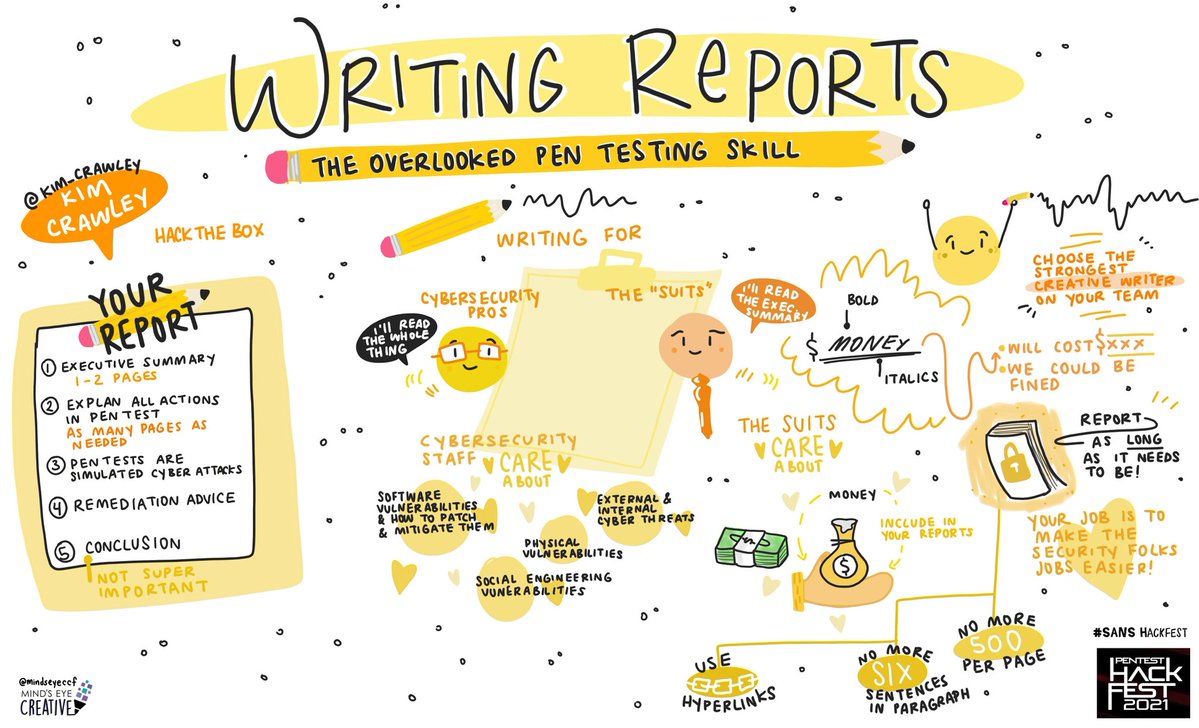 WRITING REPORTS
THE OVERLOOKED PEN TESTING SKILL
@KIM_CRAWLEY
KIM
CRAWLEY
HACK THE BOX
YOUR
REPORT
1 EXECUTIVE SUMMARY
1-2 PAGES
2 EXPLAN ALL ACTIONS
IN PEN TEST
AS MANY PAGES AS
NEEDED
3 PEN TESTS ARE
SIMULATED CYBER ATTACKS
4 REMEDIATION ADVICE
5 CONCLUSION
NOT SUPER
IMPORTANT
WRITING FOR
CYBERSECURITY
PROS
I'LL READ
THE WHOLE
THING
THE "SUITS"
I'LL READ
THE EXEC
SUMMARY
CYBERSECURITY
STAFF
CARE
ABOUT
SOFTWARE
VULNERABILITIES
& HOW TO PATCH
& MITIGATE THEM
EXTERNAL &
INTERNAL
CYBER THREATS
PHYSICAL
VULNERABILITIES
SOCIAL ENGINEERING
VUNERABILITIES
BOLD
$ MONEY
ITALICS
THE SUITS
CARE
ABOUT
MONEY
INCLUDE IN
YOUR REPORTS
$
CHOOSE THE
STRONGEST
CREATIVE WRITER
ON YOUR TEAM
WILL COST $XXX
WE COULD BE
FINED
REPORT
AS LONG
AS IT NEEDS
TO BE!
YOUR JOB IS TO
MAKE THE
SECURITY FOLKS
JOBS EASIER!
USE
HYPERLINKS
NO MORE
SIX
SENTENCES
IN PARAGRAPH
NO MORE
500
PER PAGE
#SANS HACKFEST
PENTEST
HACK
FEST
2021
@mindseyeccf
MIND'S EYE
CREATIVE